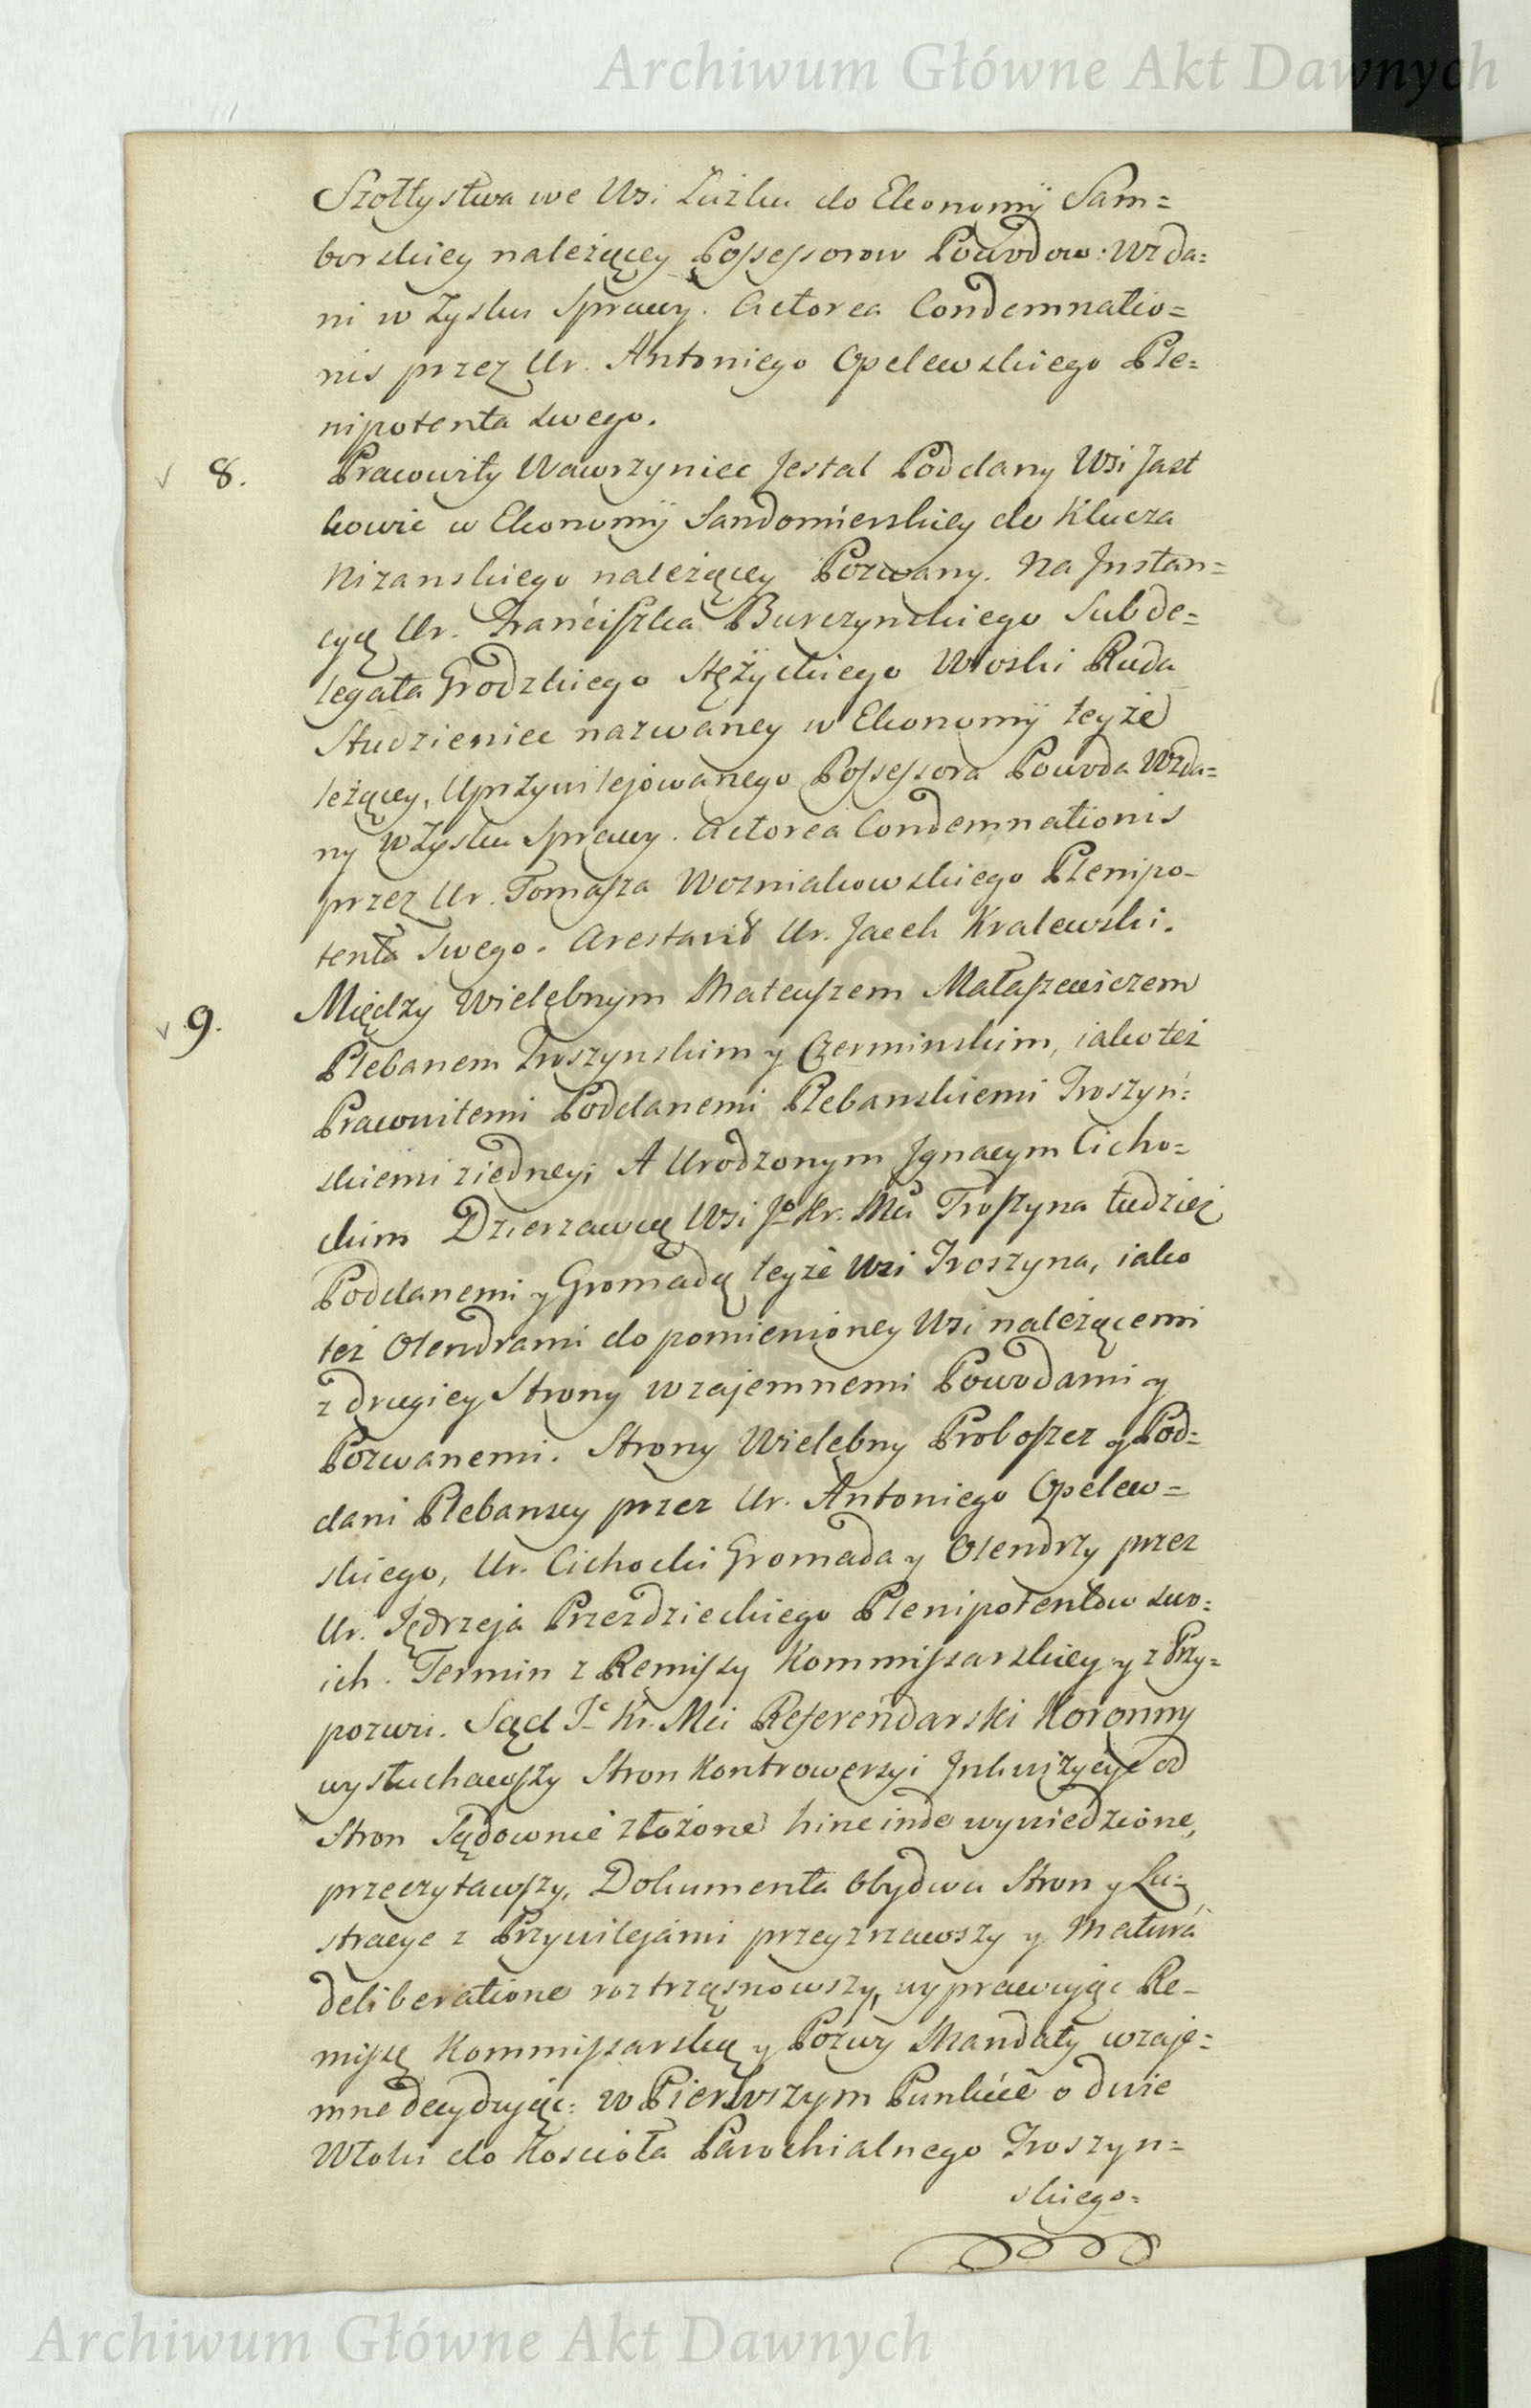 Archiwum Główne Akt Dawnych
Szołtystwa we Wsi Łużku do Ekonomij Sam=
borskiey należącey Possessorow Powodow: Wzda=
ni w Zysku Sprawy. Actorea Condemnatio=
nis przez Ur. Antoniego Opelewskiego Ple=
nipotenta swego.
8. Pracowity Wawrzyniec Jestal Poddany Wsi Jast
kowic w Ekonomij Sandomierskiey do Klucza
Nizanskiego należącey Pozwany. Na Jnstan=
cyą Ur. Franciszka Burczynskiego Subde=
legata Grodzkiego Stężyckiego Wioski Ruda
Studzieniec nazwaney w Ekonomij teyże
leżącey, Uprzywilejowanego Possessora Powoda Wzda=
ny w Zysku Sprawy. Actorea Condemnationis
przez Ur. Tomasza Wozniakowskiego Plenipo-
tenta Swego. Arestavit Ur. Jacek Kralewski.
9. Między Wielebnym Mateuszem Małaszewiczem
Plebanem Troszynskim y Czerminskim, iako też
Pracowitemi Poddanemi Plebanskiemi Troszyń=
skiemi ziedney; A Urodzonym Jgnacym Cicho=
ckim Dzierzawcą Wsi Jo Kr. Mci Troszyna tudzież
Poddanemi y Gromadą teyże Wsi Troszyna, iako
też Olendrami do pomienioney Wsi należącemi
z drugiey Strony wzajemnemi Powodami y
Pozwanemi. Strony Wielebny Proboszcz y Pod=
dani Plebanscy przez Ur. Antoniego Opelew=
skiego, Ur. Cichocki Gromada y Olendrzy przez
Ur. Jędrzeja Przezdzieckiego Plenipotentow swo=
ich. Termin z Remissy Kommissarskiey y z Przy=
pozwu. Sąd Jc Kr. Mci Referendarski Koronny
wysłuchawszy Stron Kontrowersyi Jnkwizycye od
Stron Sądownie złożone hinc inde wywiedzione,
przeczytawszy, Dokumenta Obydwu Stron y Lu=
stracye z Przywilejami przeyrzawszy y Matura
deliberatione roztrząsnowszy, wyprawując Re-
missę Kommissarską y Pozwy Mandaty wzaje=
mne decydując: w Pierwszym Punkcie o dwie
Włoki do Kosciola Parochialnego Troszyn=
skiego=
Archiwum Główne Akt Dawnych